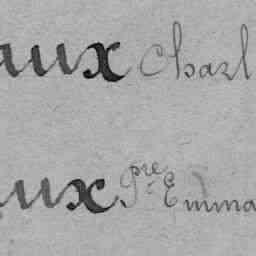 aux Charl
aux Pre Emma